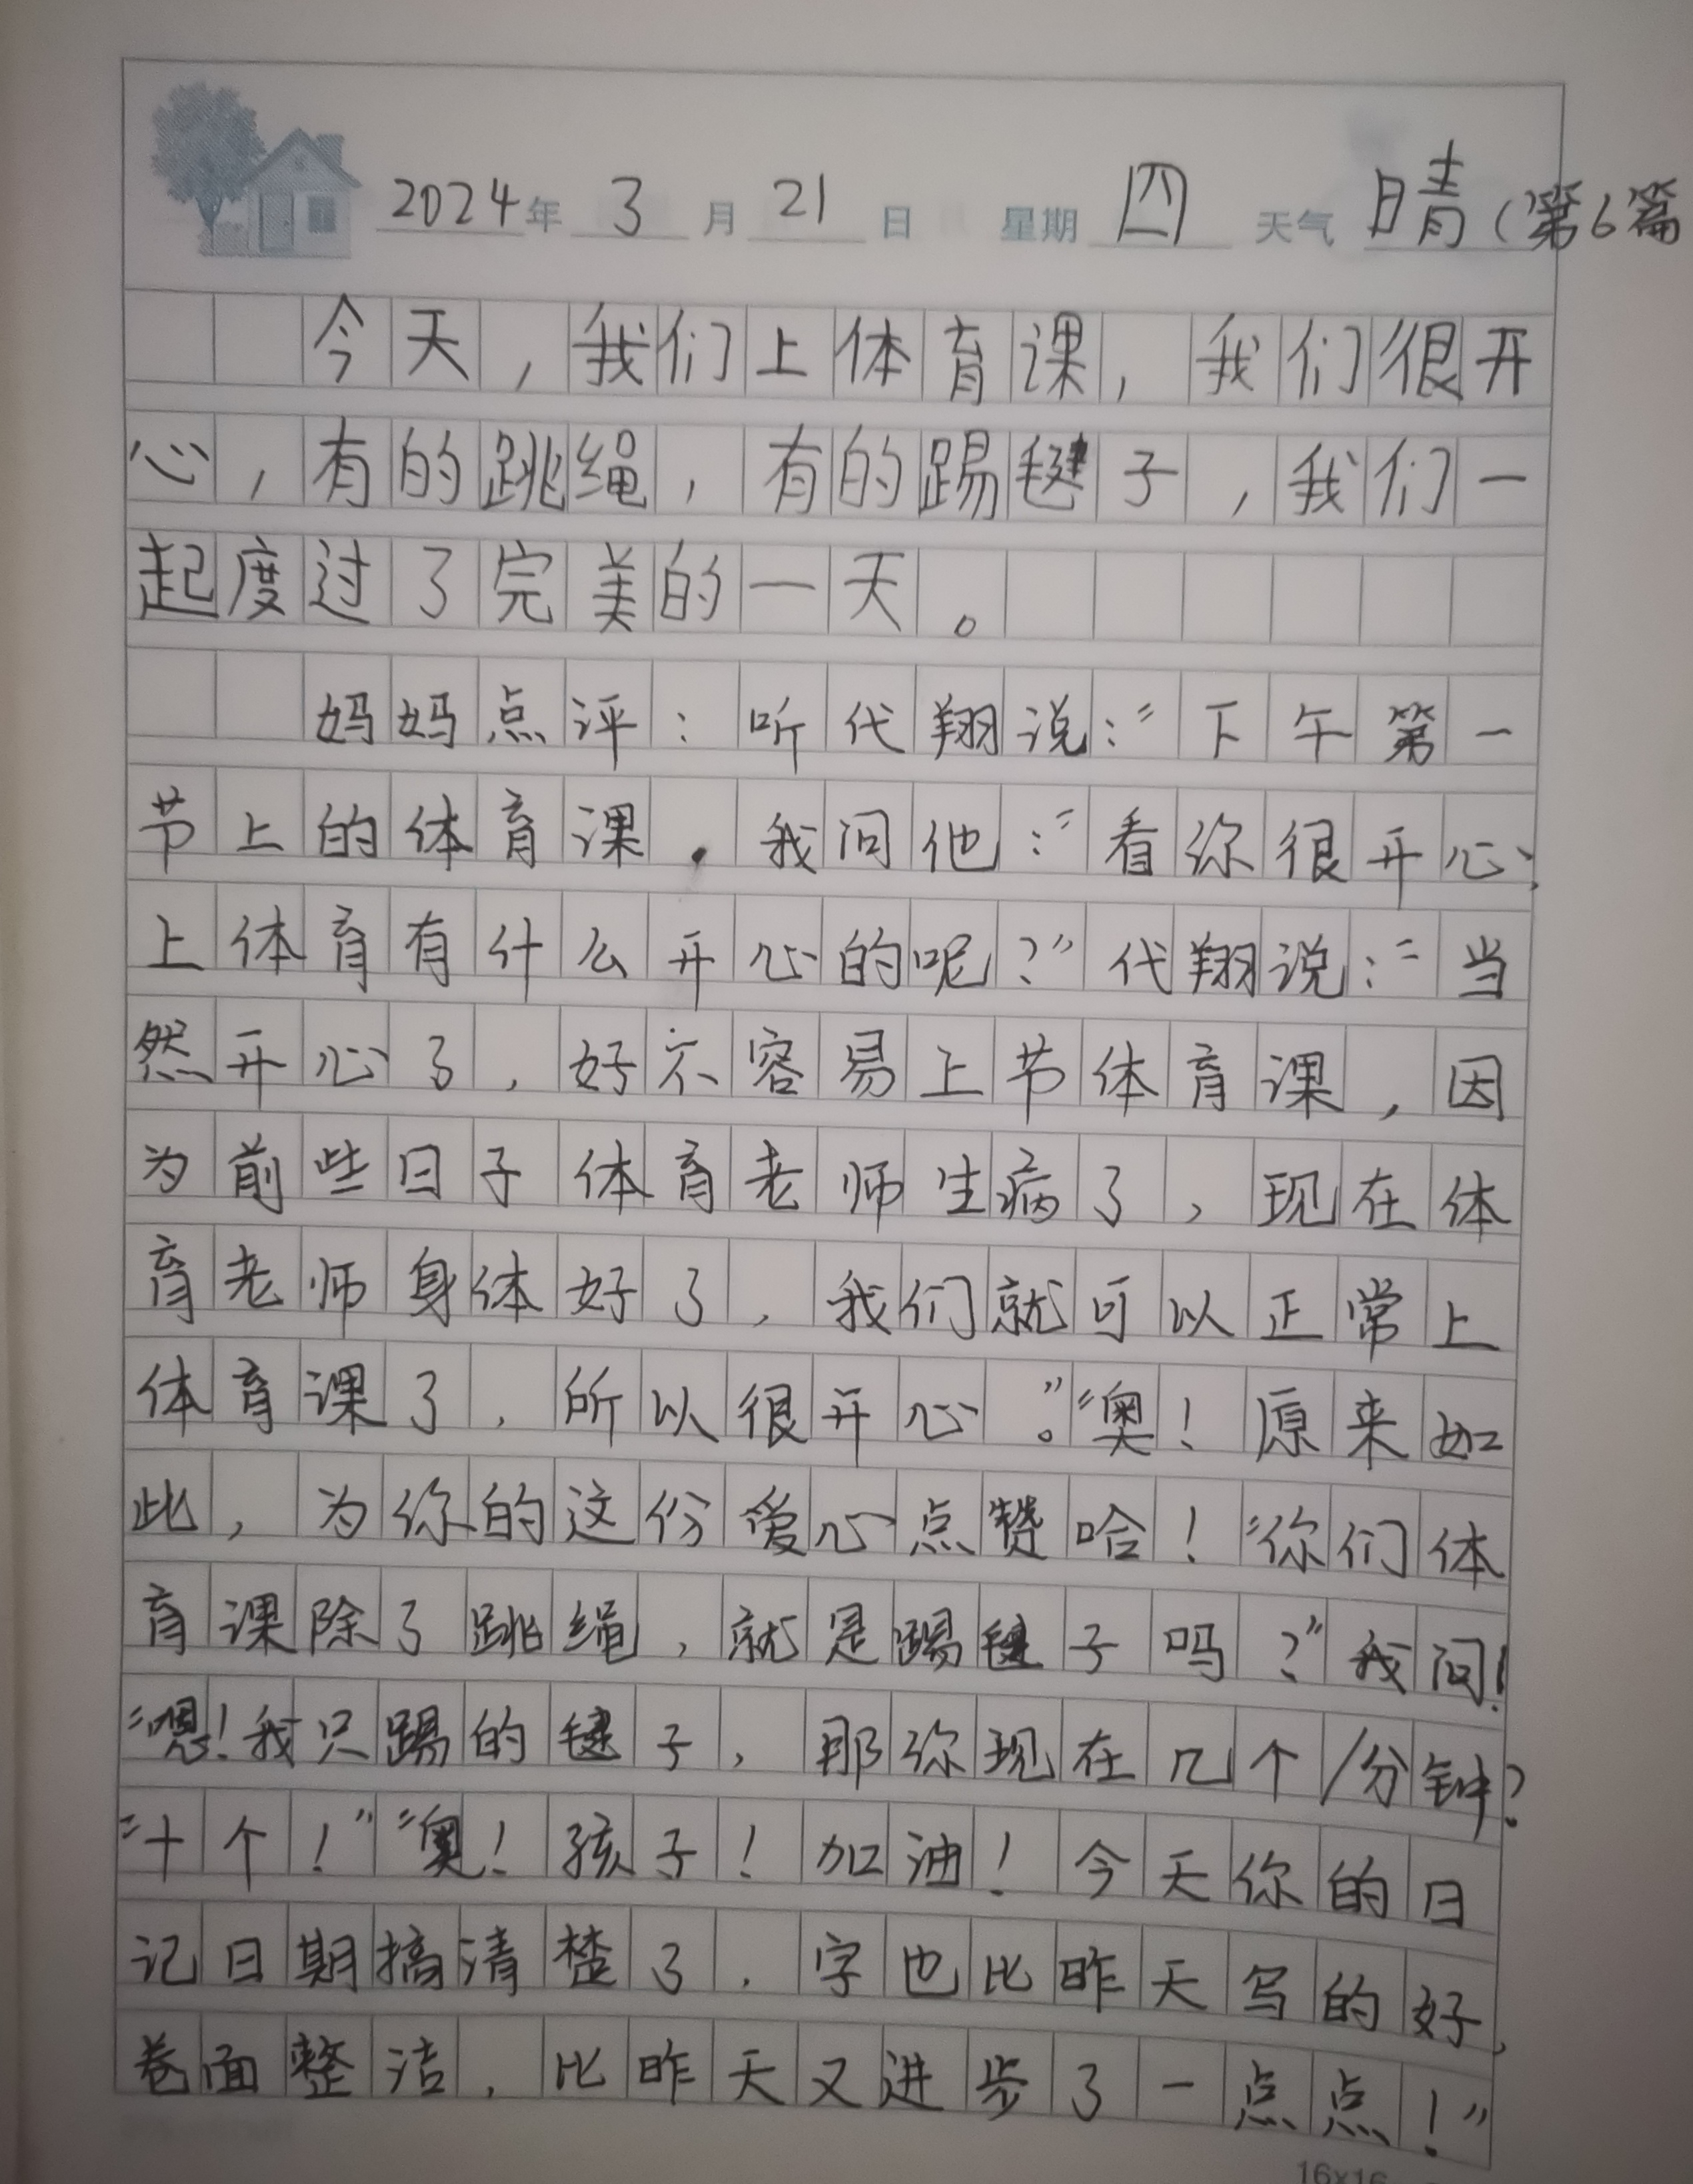 2024年 3月 21日 星期 四 天气 晴(第6篇
今天，我们上体育课，我们很开
心，有的跳绳，有的踢毽子，我们一
起度过了完美的一天。
妈妈点评：听代翔说：“下午第一
节上的体育课．我问他：“看你很开心，
上体育有什么开心的呢？”代翔说：“当
然开心了，好不容易上节体育课，因
为前些日子体育老师生病了，现在体
育老师身体好了，我们就可以正常上
体育课了，所以很开心。”“奥！原来如
此，为你的这份爱心点赞哈！“你们体
育课除了跳绳，就是踢毽子吗？”我问！
“嗯！我只踢的毽子，那你现在几个/分钟？
“十个！”“奥！孩子！加油！今天你的日
记日期搞清楚了．字也比昨天写的好，
卷面整洁，比昨天又进步了一点点！”
16×16